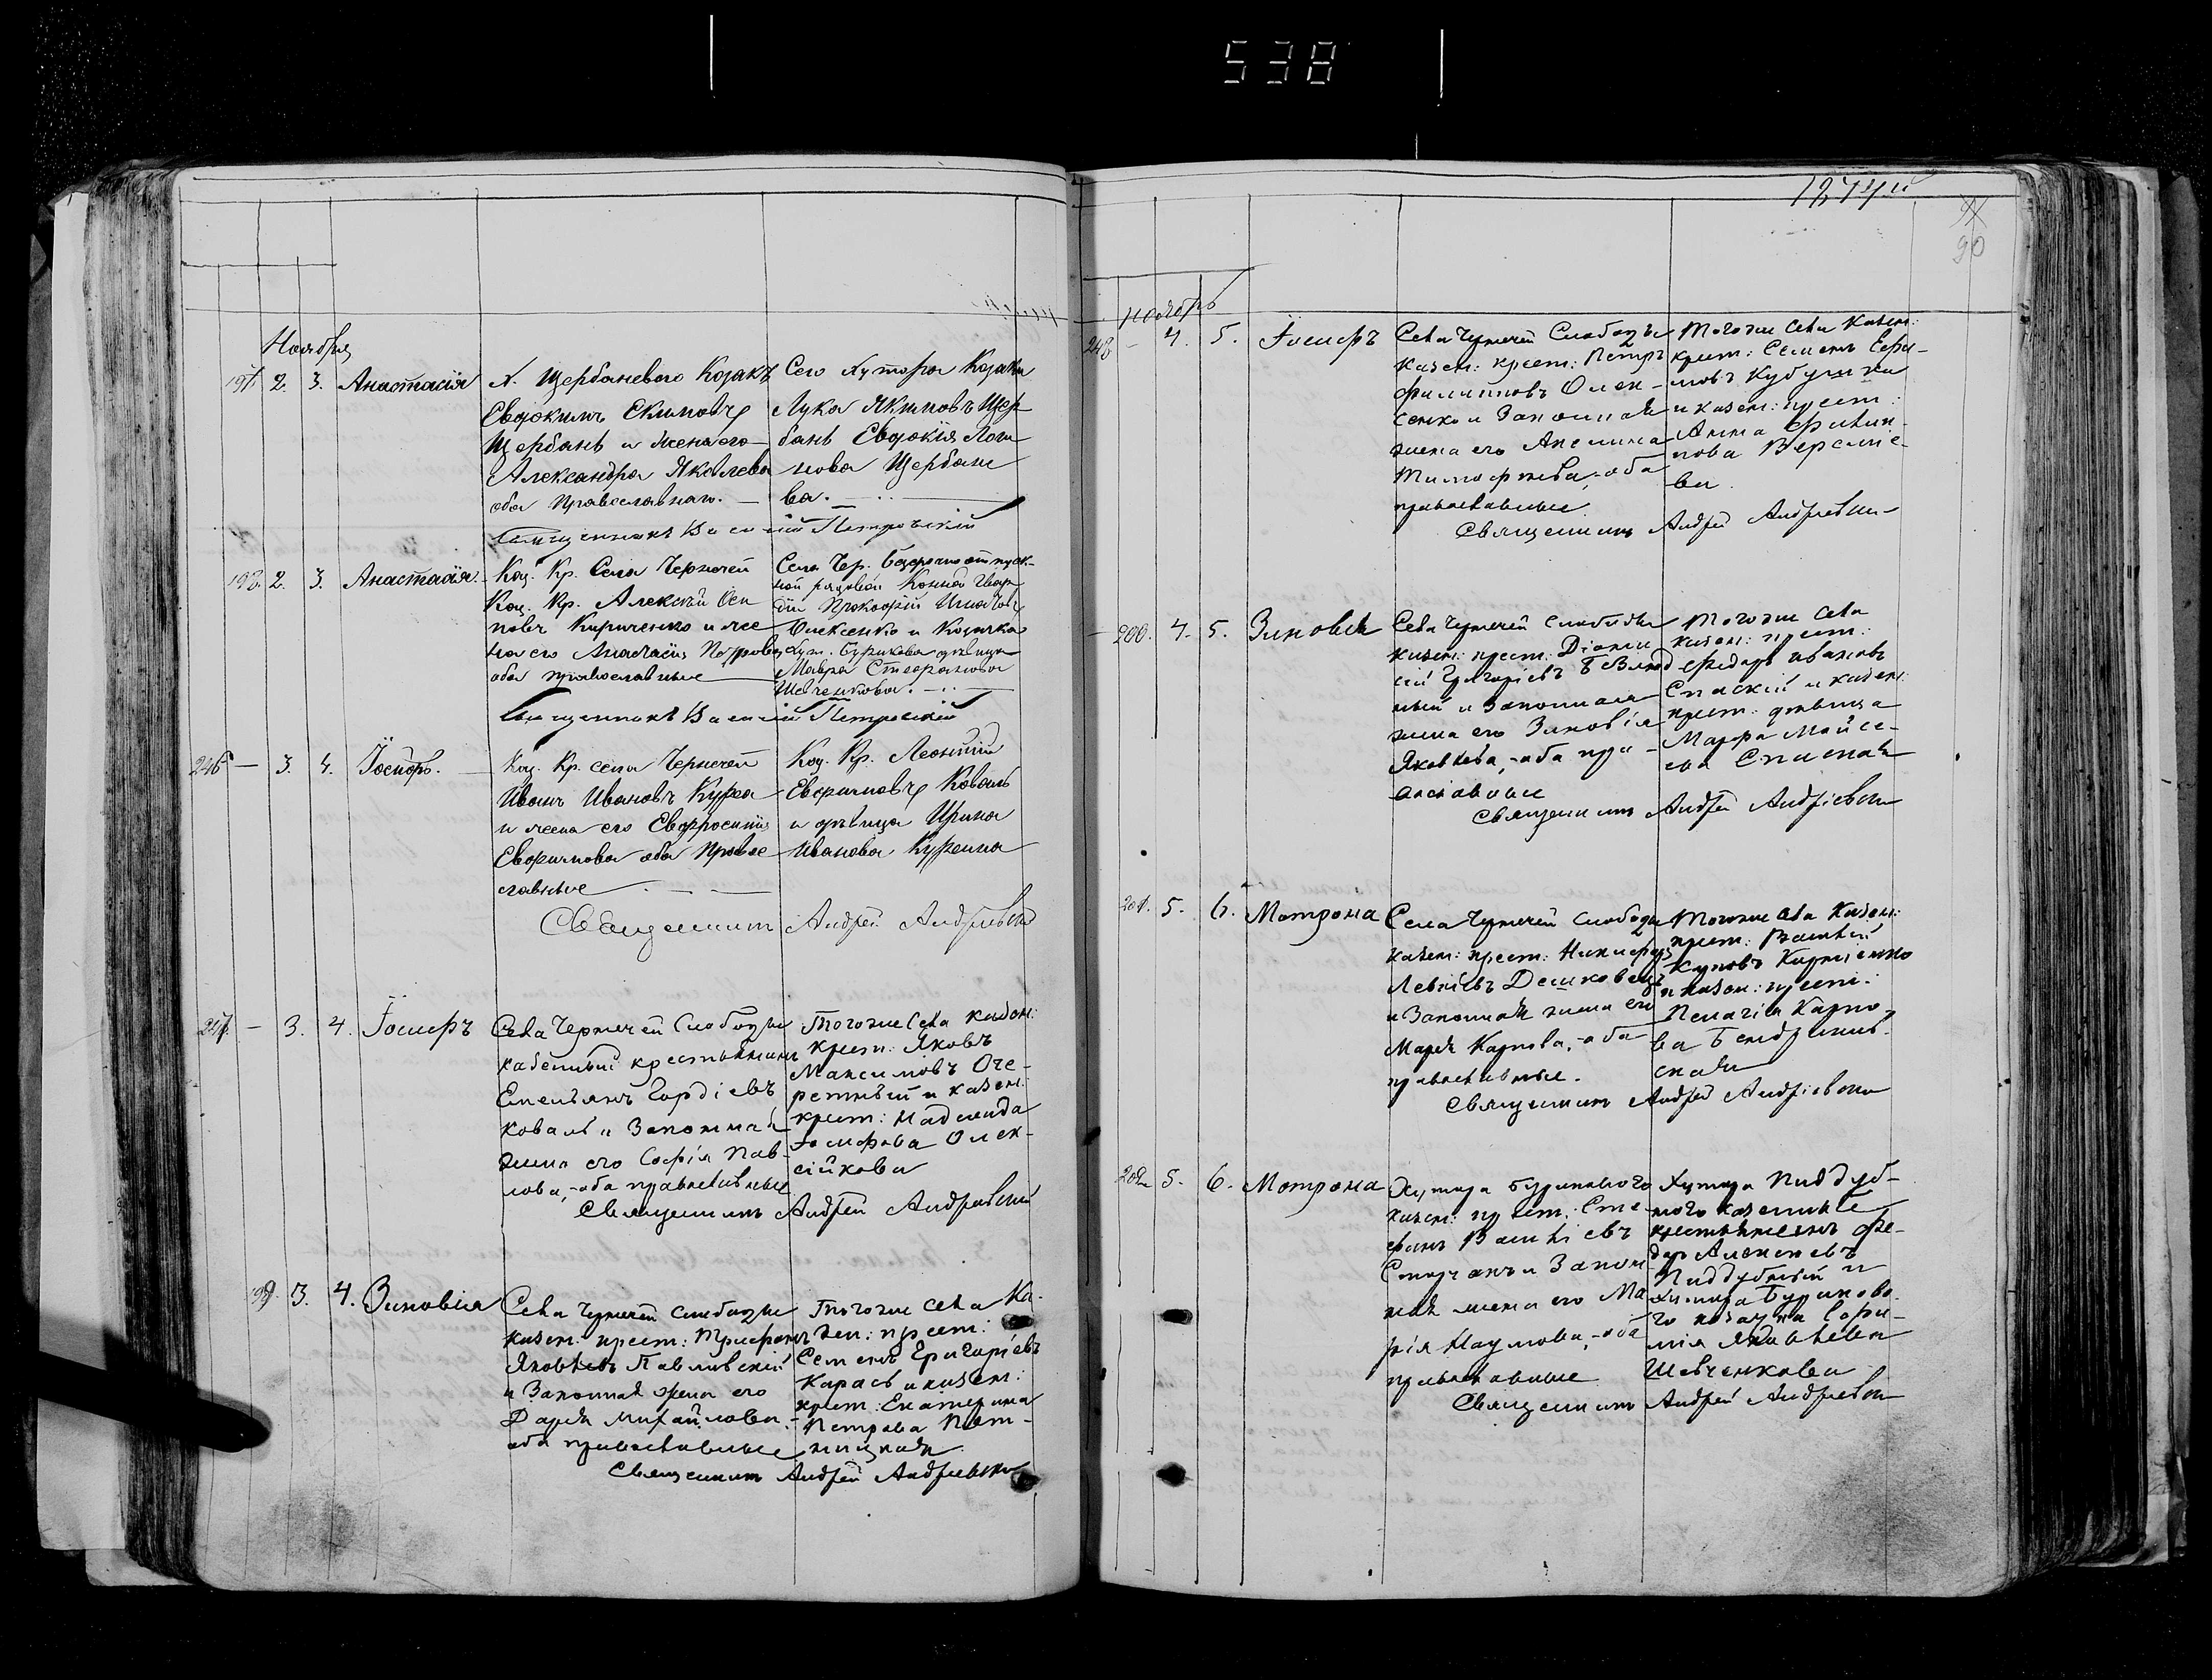 538
Ноября
197. 2. 3. Анастасія
Х. Щербаневого Козакъ
Евдокимъ Екимовъ
Щербань и жена его
Александра Яковлева
оба православнаго.
Сего Хутора Козакъ
Лука Якимовъ Щер-
бань Евдокія Логи-
нова Щербане-
ва.
Священникъ Василій Петровскій
198. 2. 3. Анастасія.
Каз. Кр. Села Чернечей
Каз. Кр. Алексѣй Оси
повъ Кириченко и же
на его Анастасія Петрова
оба православные
Села Чер. безсрочноотпуск-
ной рядовой Конной Гвар
діи Прокофій Игнатовъ
Олексенко и Козачка
Хут. Бурикова дѣвица
Мавра Стефанова
Шевченкова.
Священникъ Василій Петровскій
246 — 3. 4. Іосифъ.
Каз. Кр. села Чернечей
Иванъ Ивановъ Курка
и жена его Евфросинія
Ефимова оба Правос
славные
Каз. Кр. Леонтій
Ефимовъ Коваль
и дѣвица Ирина
Иванова Куркина
Священникъ Андрей Андріевскій
247. — 3. 4. Іосифъ
Села Чернечей Слободы
казенный крестьянинъ
Емельянъ Гордіевъ
Коваль и Законная
жена его Софія Пав-
лова, оба православные
Тогоже Села казен:
крест: Яковъ
Максимовъ Оче-
ретный и казен.
крест: Надежда
Іосифова Олек-
сійкова
Священникъ Андрей Андріевскій
199. 3. 4. Зиновія
Села Чернечей слободы
казен: крест: Трифонъ
Яковлевъ Павловскій
и Законная жена его
Дарья Михайлова
оба православные
Тогоже села Ка-
зен: крест:
Семенъ Григоріевъ
Карась и казен:
крест: Екатерина
Петрова
Священникъ Андрей Андріевскій
1874
90
Ноябрь
248 — 4. 5. Іосифъ
Села Чернечей Слободы
казен: крест: Петръ
Филиповъ Олек-
сенко и Законная
жена его Акилина
Тимофеева, оба
православные
Тогоже села Казен:
крест: Семенъ Ефи-
мовъ
и казен: крест:
Анна Филип-
пова
ва.
Священникъ Андрей Андріевскій
200. 4. 5. Зиновія
Села Чернечей слободы
казен: крест: Діони
сій Григоріевъ
ный и Законная
жена его Зиновія
Яковлева, оба пра-
вославные
Тогоже села
казен: крест:
Федоръ Ивановъ
Спаскій и казен:
крест: дѣвица
Марфа Мойсе-
ева Спаская
Священникъ Андрей Андріевскій
201. 5. 6. Мотрона
Села Чернечей слободы
казен: крест: Никифоръ
Левкіевъ Дешковецъ
и Законная жена его
Марья Карпова, оба
православные.
Тогоже села Казен:
крест: Василій
Карповъ Кириченко
и казен: крест:
Пелагія Карпо-
ва
ская
Священникъ Андрей Андріевскій
202. 5. 6. Мотрона
Хутора Бурикового
казен: крест: Сте-
фанъ Василіевъ
и Закон
ная жена его Ма
рія Наумова, оба
православные
Хутора Поддуб-
ного казенные
крестьяне Фе-
доръ Алексѣевъ
Поддубный и
Хутора Бурикова-
го козачка Софи-
мія Яковлева
Шевченкова
Священникъ Андрей Андріевскій